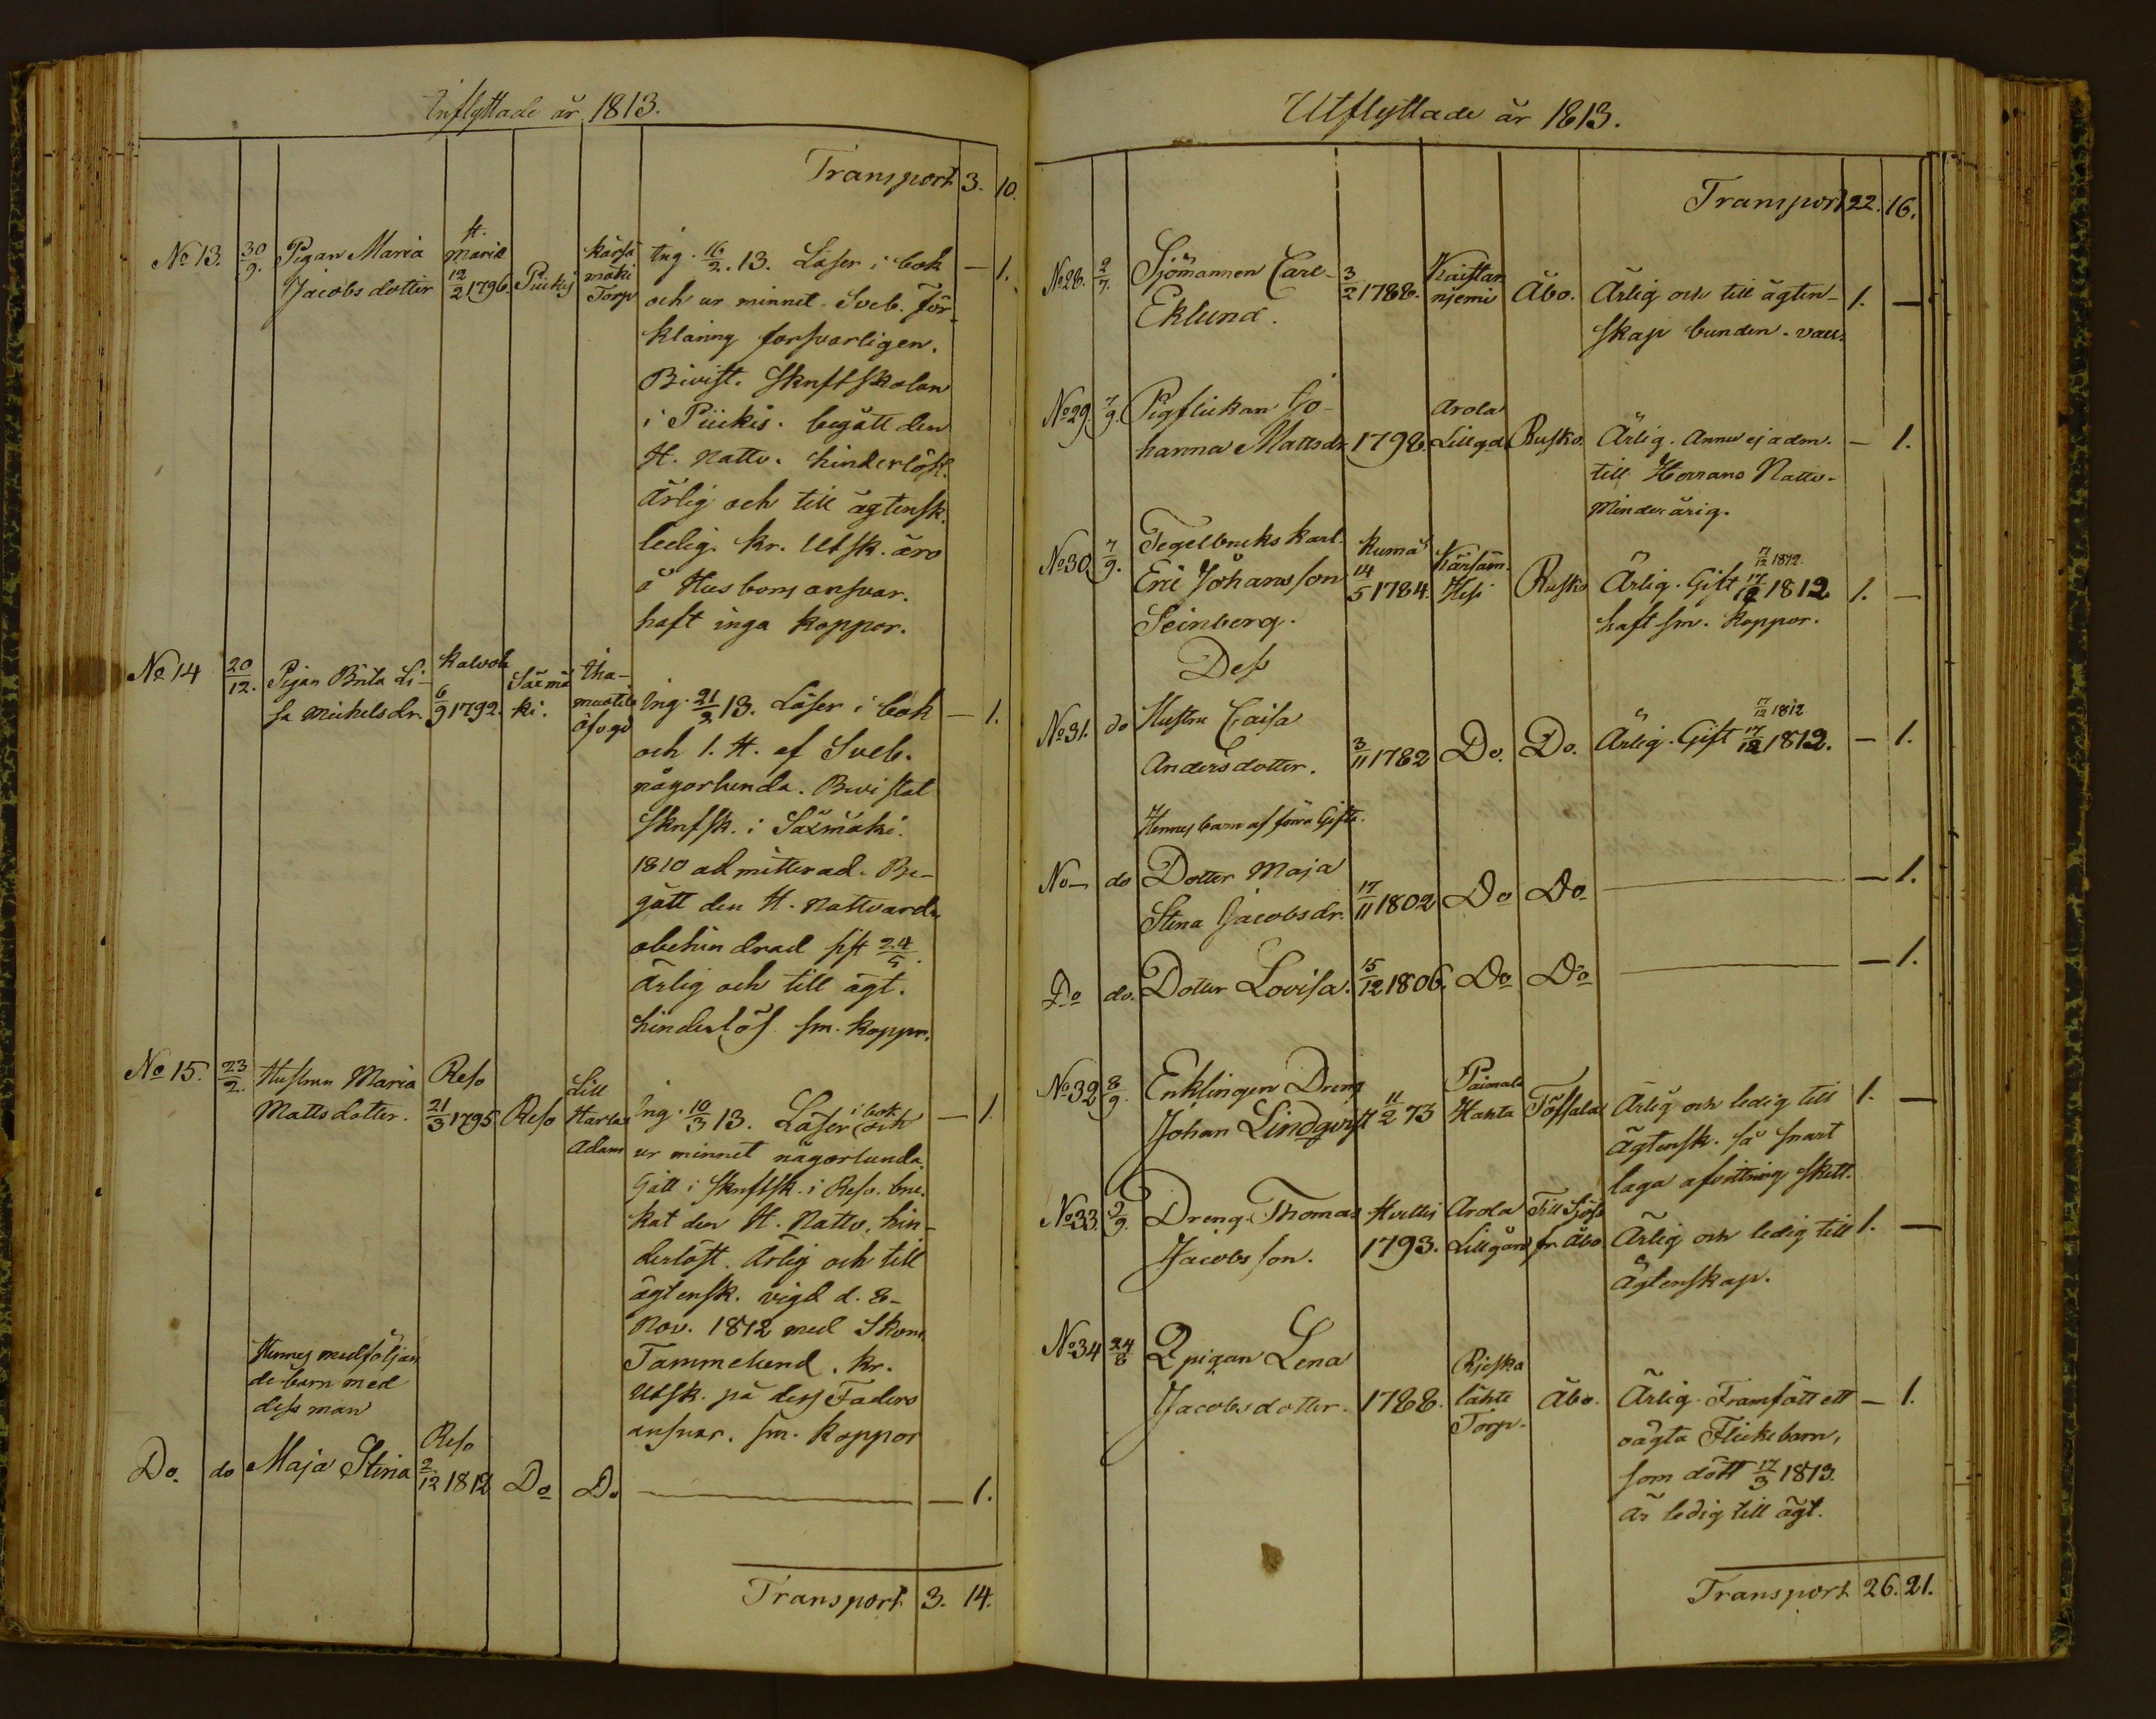 Inflyttade år 1813.
Transport 3. 10.
No 13. 30/9. Pigan Maria Jacobs dotter
St. Mariæ 12/2 1796.
Piikis
Kärsä
mäki
Torp
Ing. 16/2. 13. Läser i bok — 1.
och ur minnet Sveb. För-
klaring forsvarligen.
Bivist. Skriftskolan
i Piikis. begått den
H. Nattv. hinderlöst.
Ärlig och till ägtensk.
ledig. Kr. Utsk. äro
å Husbons ansvar.
haft inga Koppor.
No 14 20/12. Pigan Brita Li-
sa Michelsdr.
Kalvola
6/9 1792.
Säxmä
ki.
Iha-
muotila
öfvgd
Ing. 21/2 13. Läser i bok — 1.
och 1. H. af Sveb.
någorlunda. Bevistat
Skrifsk. i Säxmäki.
1810 admitterad. Be-
gått den H. Nattvard.
obehindrad sist 24/5.
Ärlig och till ägt.
hinderlös. sm. Koppor.
No 15. 23/2. Hustrun Maria
Matts dotter.
Reso
21/3 1795
Reso
Lill
Harla
Adam
Ing. 10/3 13. Läser i bok och — 1.
ur minnet någorlunda.
Gått i Skriftsk. i Reso. bru-
kat den H. Nattv. hin-
derlöst. Ärlig och till
ägtensk. vigd d. 8-
Nov. 1812 med Skom.
Tammelund. Kr.
Utsk. på dess Faders
ansvar. sm. Koppor
Hennes medföljan
de barn med
dess man
Do. do Maja Stina
Reso
2/12 1812 Do Do — — 1.
Transport 3. 14.
Utflyttade år 1813.
Transport 22. 16.
No 28. 2/7. Sjömannen Carl
Eklund.
3/2 1788.
Kaistar
njemi
Åbo.
Ärlig och till ägten- 1. —
skap bunden. vacc.
No 29. 7/9. Pigflickan Jo-
hanna Mattsdr. 1798.
Arola
Lillgd
Rusko.
Ärlig. Annu ej adm. — 1.
till Herrans Nattv.
Minderårig.
No 30 7/9. Tegelbruks karl
Eric Johansson
Seinberg.
Kumå
14/5 1784.
Kärsäm.
Hesi
Rusko
17/12 1812.
Ärlig. Gift 17/12 1812 1. —
haft sm. Koppor.
Dess
No 31. do Hustru Caisa
Andersdotter. 3/11 1782 Do. Do.
17/12 1812
Ärlig. Gift 17/12 1812. — 1.
Hennes barn af förra Gifte.
No — do Dotter Maja
Stina Jacobsdr. 17/11 1802 Do Do — — 1.
Do do. Dotter Lovisa. 15/12 1806. Do Do — — 1.
No 32 8/9. Enklingen Dreng
Johan Lindqvist 11/2 73
Paimala
Hanta
Töfsala
Ärlig och ledig till 1. —
ägtensk. så snart
laga afvittring skett.
No 33. 9/9. Dreng. Thomas
Jacobsson.
Huittis
1793.
Arola
Lillgård
Till Sjöss
fr. Åbo
Ärlig och ledig till 1. —
Ägtenskap.
No 34 24/8 Qpigan Lena
Jacobsdotter. 1788.
Rieska
lähte
Torp.
Åbo.
Ärlig. Framfått ett — 1.
oägta Flickebarn,
som dött 17/3 1813.
är ledig till ägt.
Transport 26. 21.